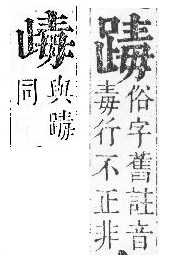 俗字舊註音
毒行不正非
與
同